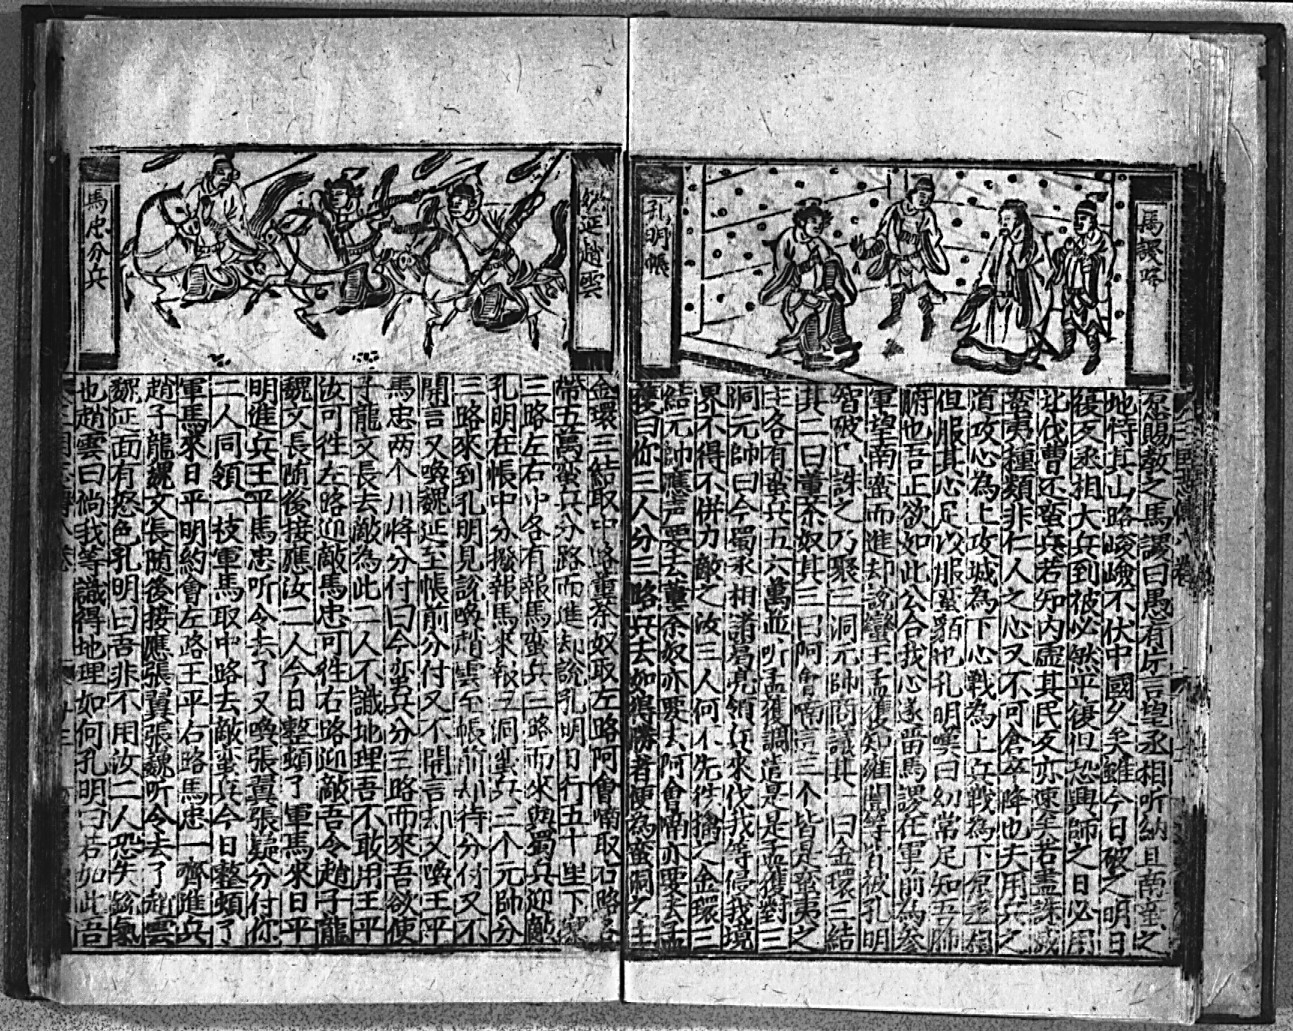 馬謖哧
孔明帳
愿賜教之馬謖曰愚有片言望丞相听納且南蛮之
地恃其山路峻嶮不伏中國久矣雖今日破之明日
復反丞相大兵到彼必然平復但恐興師之日必用
北伐曹丕蛮兵若知内虛其民反亦速矣若盡誅滅
蛮夷種類非仁人之心又不可倉卒降也夫用兵之
道攻心為上攻城為下心戰為上兵戰為下愿丞相
但服其心足以服蛮貊也孔明嘆曰幼常足知吾肺
腑也吾正欲如此公合我心遂畱馬謖在軍前為参
軍望南蛮而進却說蠻王孟獲知雍闓等皆被孔明
智破已誅之乃聚三洞元帥商議其一曰金環三結
其二曰董荼奴其三曰阿會喃言三个皆是蛮夷之
主各有蛮兵五六萬並听孟獲調遣是是孟獲對三
洞元帥曰今蜀丞相諸葛亮領兵來伐我等侵我境
界不得不併力敵之汝三人何不先徃擒之金環三
結元帥應声要去董荼奴亦要去阿會喃亦要去孟
獲曰你三人分三路兵去如得勝者便為蛮洞之主
狄延趙雲
馬忠分兵
金環三結取中路董荼奴取左路阿會喃取右路各
帶五萬蛮兵分路而進却說孔明日行五十里下寨
三路左右中各有報馬蛮兵三路而來與蜀兵迎敵
孔明在帳中分撥報馬來報三洞蛮兵三个元帥分
三路來到孔明見說喚趙雲至帳前却待分付又不
開言又喚魏延至帳前分付又不開言却又喚王平
馬忠两个川將分付曰今蛮兵分三路而來吾欲使
子龍文長去敵為此二人不識地理吾不敢用王平
汝可徃左路迎敵馬忠可徃右路迎敵吾令趙子龍
魏文長随後接應汝二人今日整頓了軍馬來日平
明進兵王平馬忠听令去了又喚張翼張嶷分付你
二人同領一枝軍馬取中路去敵蛮兵今日整頓了
軍馬來日平明約會左路王平右路馬忠一齊進兵
趙子龍魏文長随後接應張翼張魏听令去了趙雲
魏延面有怒色孔明曰吾非不用汝二人恐失銳氣
也趙雲曰倘我等識得地理如何孔明曰若如此吾